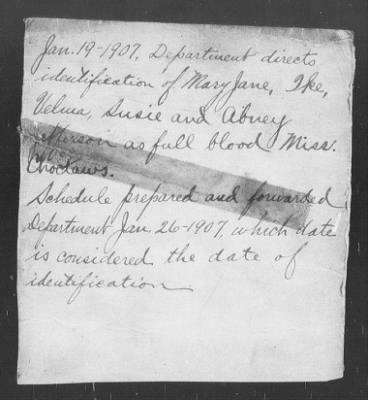 Jan. 19-1907, Department directs
identification of Mary Jane, Ike,
Velma, Susie and Abney
as full blood Miss.
Choctaws.
Schedule prepared and forwarded
Department Jan. 26-1907, which date
is considered the date of
identification